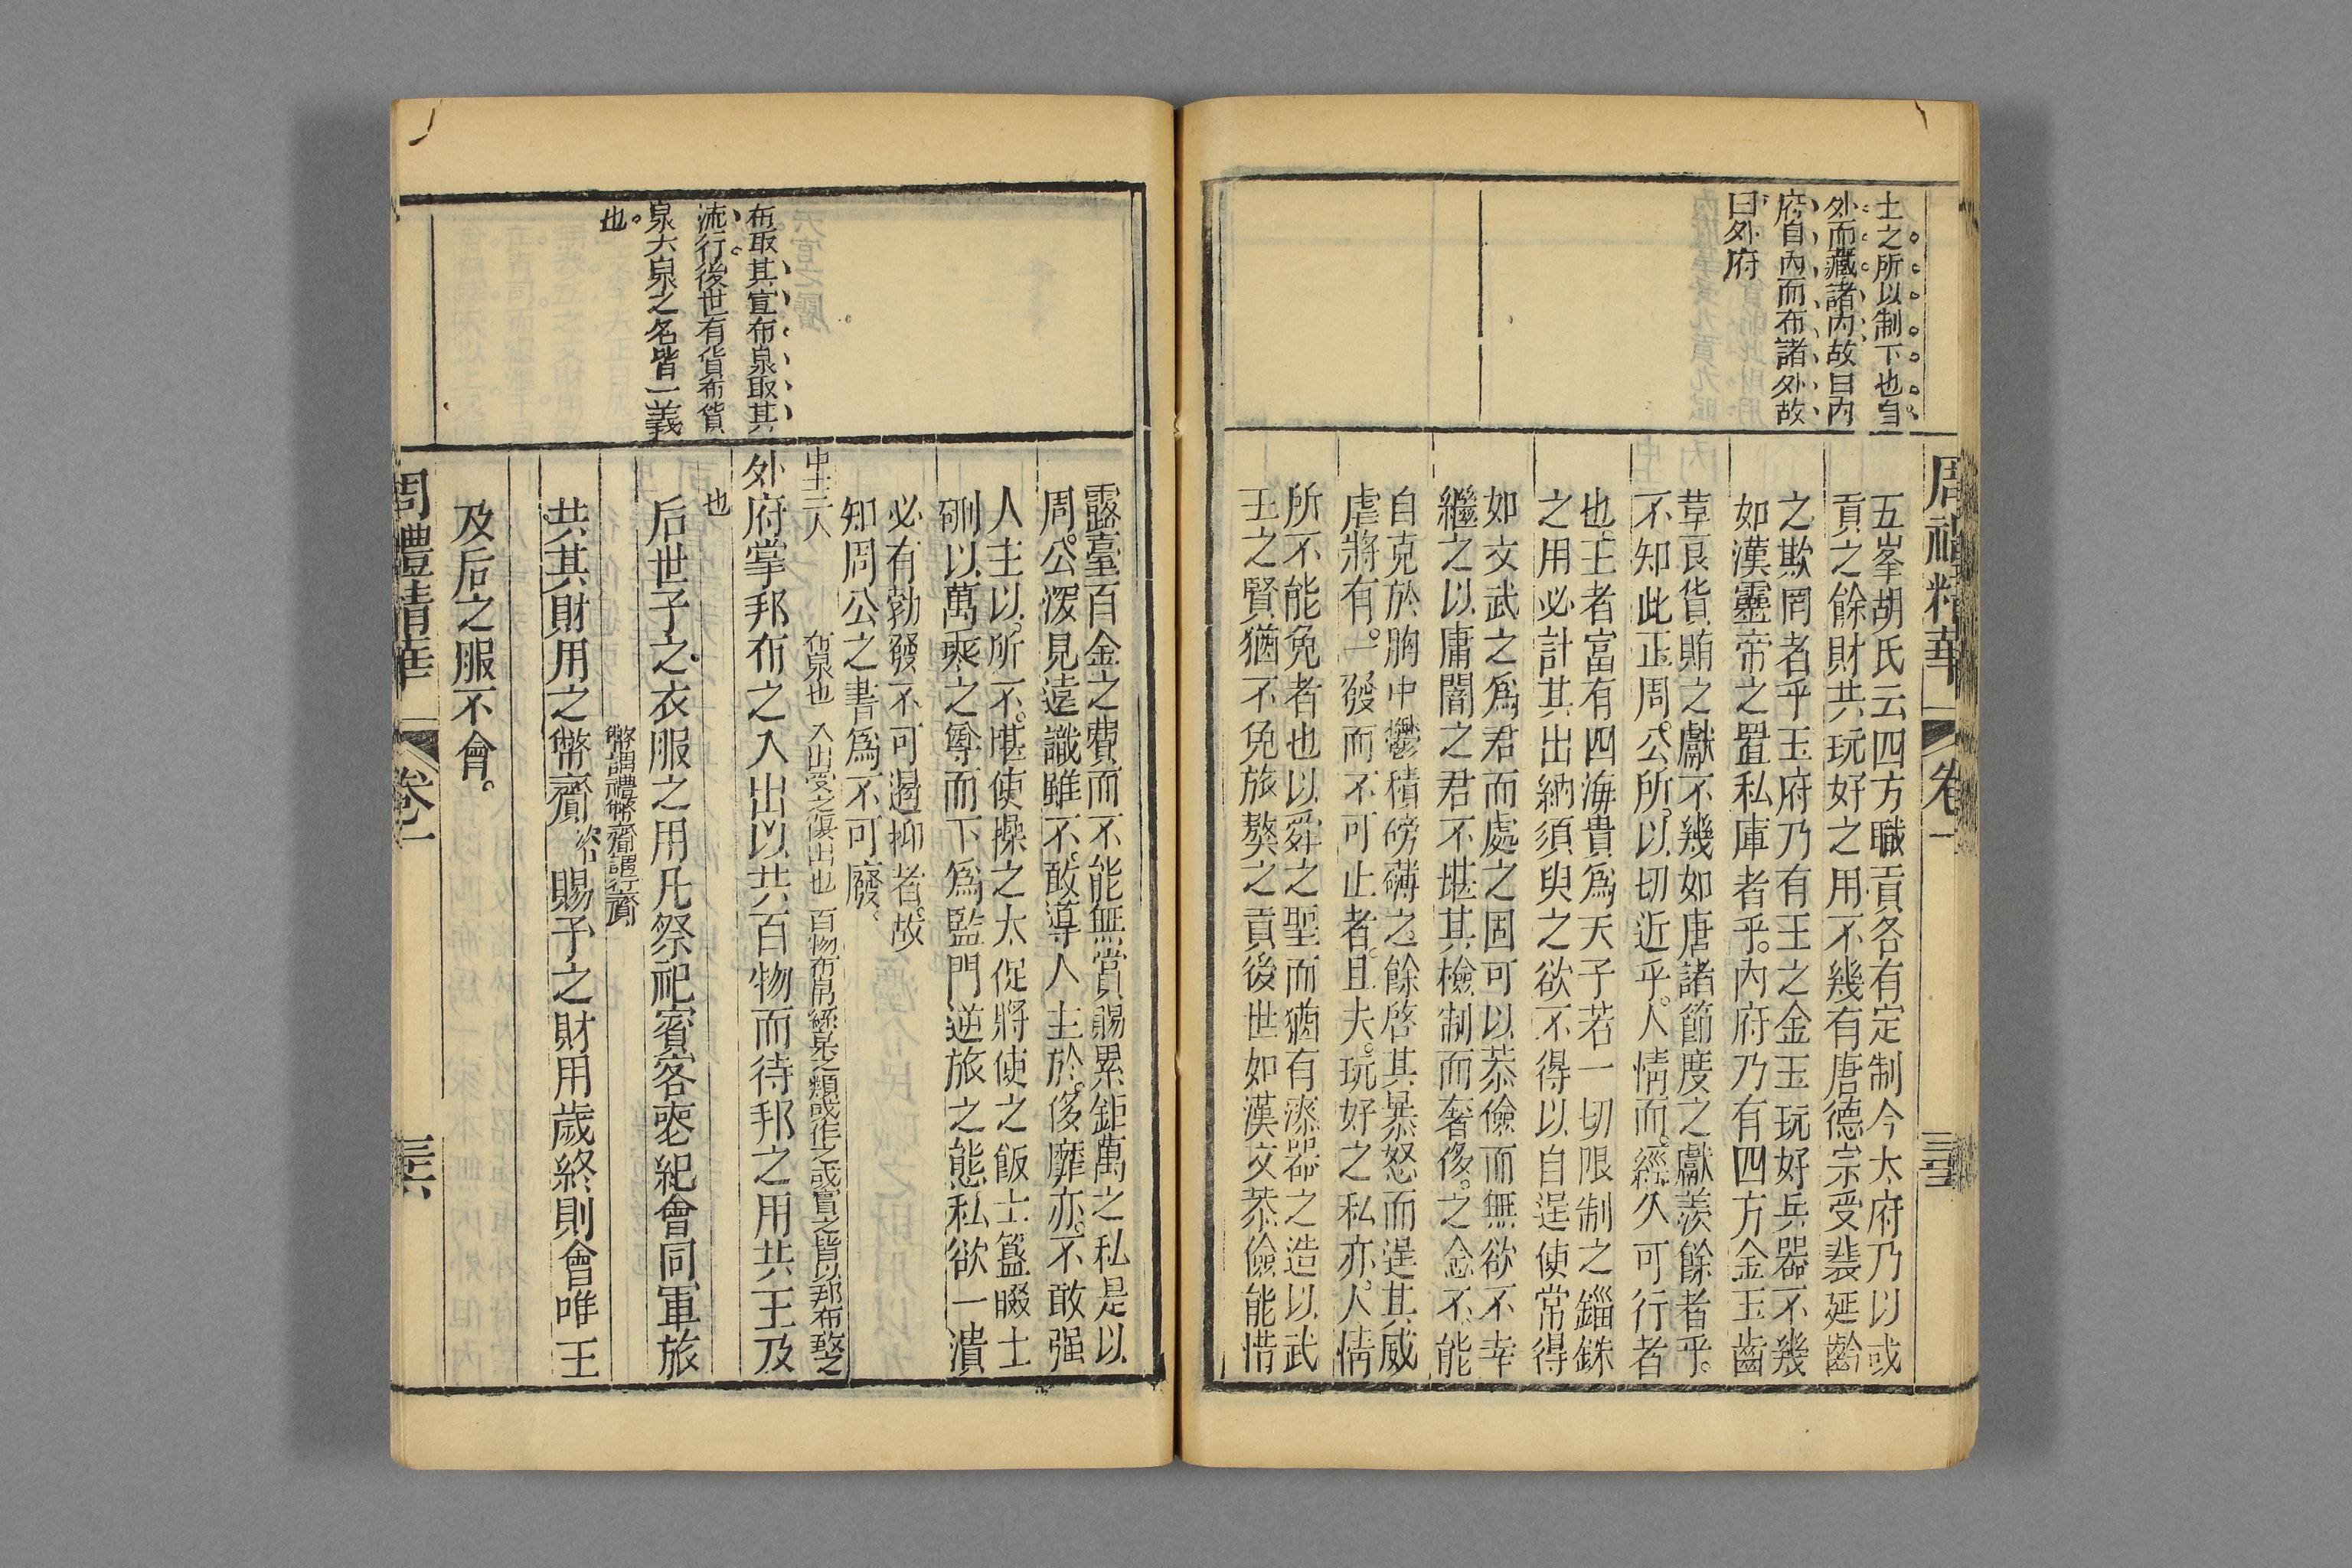 周禮精華
卷一
三十五
士之所以制下也自
外而藏諸內故曰內
府自內而布諸外故
曰外府
五峯胡氏云四方職貢各有定制今太府乃以或
貢之餘財共玩好之用不幾有唐德宗受裴延齡
之欺罔者乎玉府乃有王之金玉玩好兵器不幾
如漢靈帝之置私庫者乎內府乃有四方金玉齒
草良貨賄之獻不幾如唐諸節度之獻羨餘者乎
不知此正周公所以切近乎人情而經久可行者
也王者富有四海貴爲天子若一切限制之錙銖
之用必計其出納須臾之欲不得以自逞使常得
如文武之爲君而處之固可以恭儉而無欲不幸
繼之以庸闇之君不堪其檢制而奢侈之念不能
自克於胸中鬱積磅礴之餘啓其暴怒而逞其威
虐將有一發而不可止者且夫玩好之私亦人情
所不能免者也以舜之聖而猶有漆器之造以武
王之賢猶不免旅獒之貢後世如漢文恭儉能惜
布取其宣布泉取其
流行後世有貨布貨
泉大泉之名皆一義
也
露臺百金之費而不能無賞賜累鉅萬之私是以
周公深見遠識雖不敢導人主於侈靡亦不敢强
人主以所不堪使操之太促將使之飯土簋啜土
硎以萬乘之尊而下爲監門逆旅之態私欲一潰
必有勃發不可遏抑者故
知周公之書爲不可廢
中士二人
布泉也 入出受之復出也 百物布帛絲枲之類或作之或買之皆以邦布致之
外府掌邦布之入出以共百物而待邦之用共王及
也
后世子之衣服之用凡祭祀賓客喪紀會同軍旅
幣謂禮幣齎謂行齎
共其財用之幣齎咨賜予之財用歲終則會唯王
及后之服不會
周禮精華
卷一
三十六